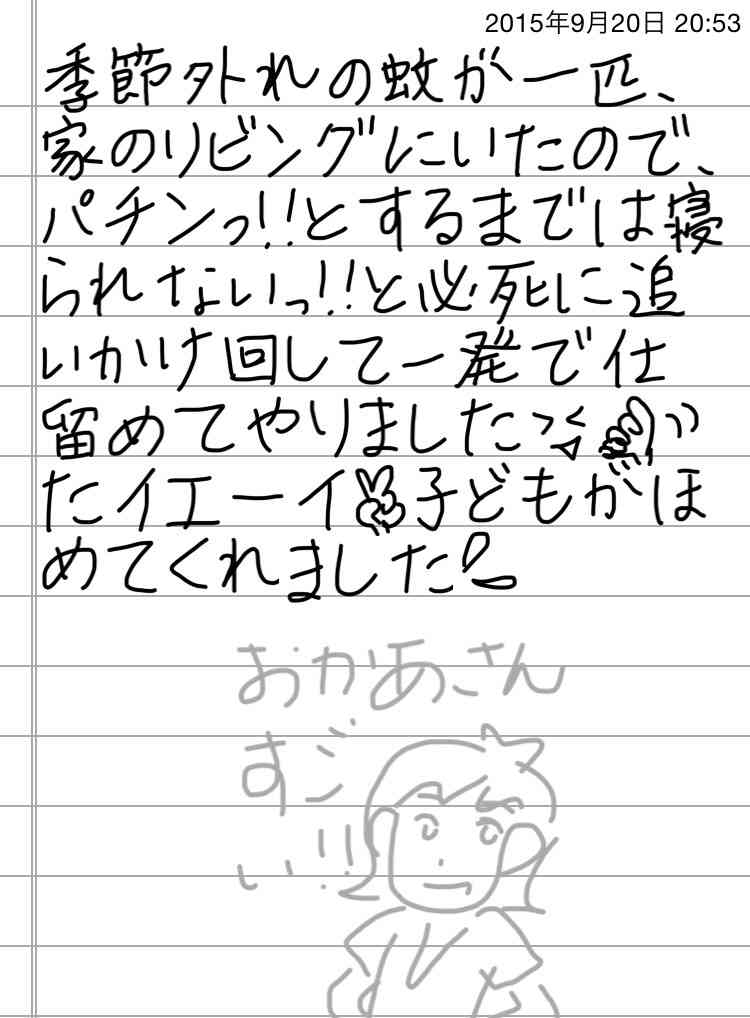 2015年9月20日 20:53
季節外れの蚊が一匹、
家のリビングにいたので、
パチンっ!!とするまでは寝
られないっ!!と必死に追
いかけ回して一発で仕
留めてやりました
たイエーイ✌子どもがほ
めてくれました!
おかあさん
すご
い!!